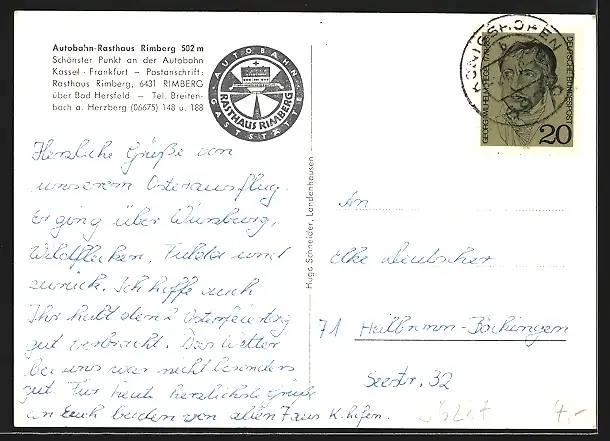 Autobahn-Rasthaus Rimberg 502 m
Schönster Punkt an der Autobahn
Kassel - Frankfurt – Postanschrift:
Rasthaus Rimberg, 6431 RIMBERG
über Bad Hersfeld – Tel. Breiten-
bach a. Herzberg (06675) 148 u. 188
AUTOBAHN
RASTHAUS RIMBERG
GASTSTÄTTE
KÖNIGSHOFEN
GEORG WILHELM F. HEGEL 1770/1831
DEUTSCHE BUNDESPOST
20
Herzliche Grüße von
unserem Osterausflug.
Er ging über Würzburg,
Wildflecken, Fulda und
zurück. Ich hoffe auch
Ihr habt den 2 Osterfeiertag
gut verbracht. Das Wetter
bei uns war nicht besonders
gut. Für heute herzlichste Grüße
an Euch beiden von allen aus K.hofen.
Hugo Schneider, Landenhausen
An
Elke Deutscher
71 Heilbronn-Böckingen
Seestr. 32
4.-